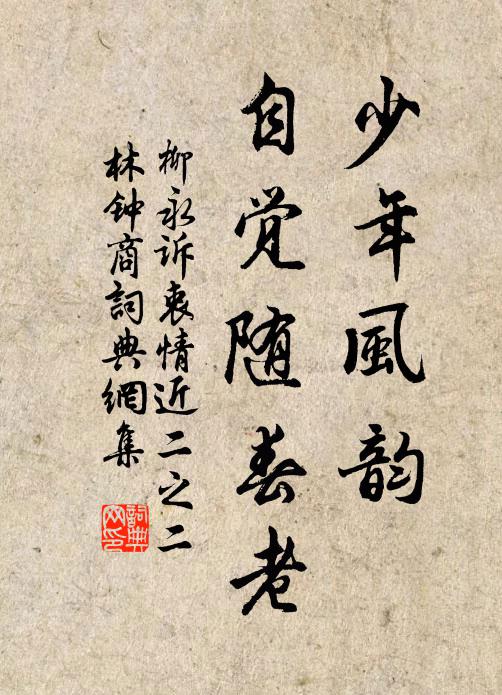 少年風韵
自觉随春老
柳永诉衷情近二之二
林钟商詞典網集
詞典网印